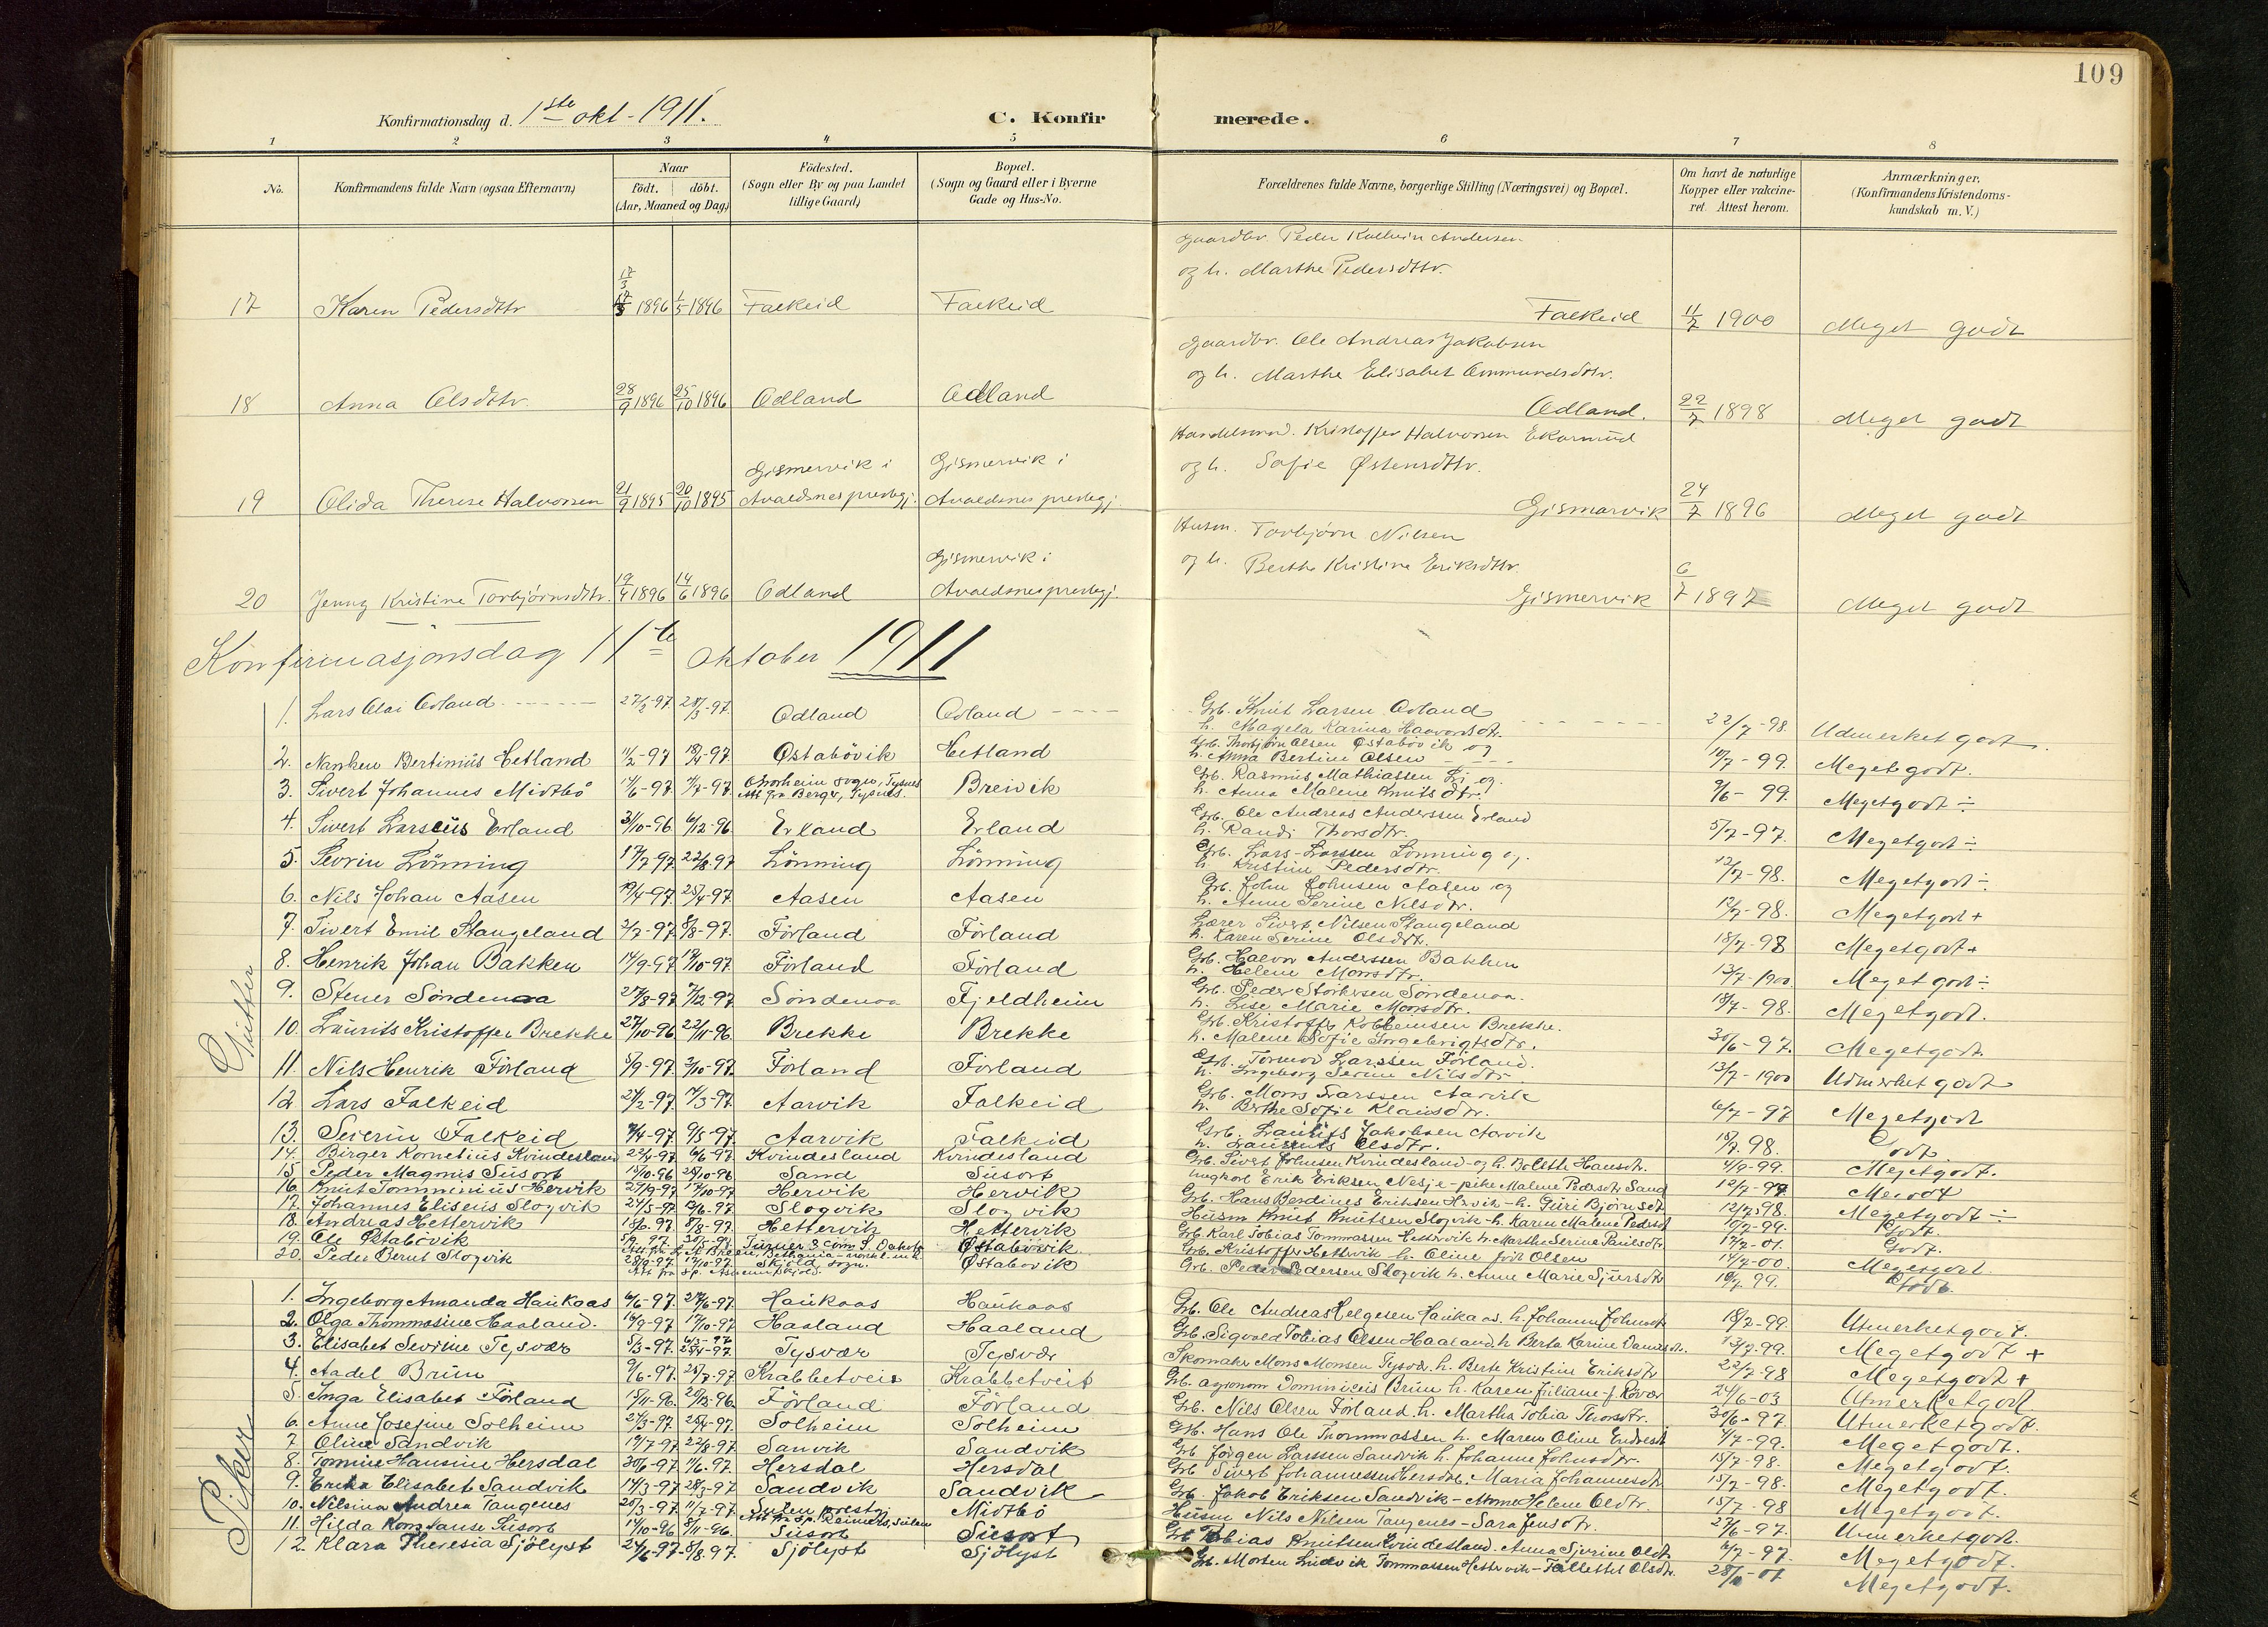 109
Konfirmationsdag d. 1ste okt - 1911.
C. Konfirmerede.
1 2 3 4 5 6 7 8
No.
Konfirmandens fulde Navn (ogsaa Efternavn)
Naar
födt. döbt.
(Aar, Maaned og Dag)
Födested.
(Sogn eller By og paa Landet
tillige Gaard)
Bopæl.
(Sogn og Gaard eller i Byerne
Gade og Hus-No.
Forældrenes fulde Navne, borgerlige Stilling (Næringsvei) og Bopæl.
Om havt de naturlige
Kopper eller vakcine-
ret. Attest herom.
Anmærkninger.
(Konfirmandens Kristendoms-
kundskab m. V.)
Gaardbr. Peder Andersen
og h. Marthe Pedersdttr.
17 Karen Pedersdttr 17/3 1896 1/5 1896 Falkeid Falkeid Falkeid 11/7 1900 Meget godt
Gaardbr. Ole Andreas Jakobsen
og h. Marthe Elisabet Ommundsdttr.
18 Anna Olsdttr. 28/9 1896 25/10 1896 Odland Odland Odland. 22/7 1898 Meget godt
Handelsmand. Kristoffer Halvorsen
og h. Sofie Østensdttr.
Gismervik i Gismervik i
19 Olida Therese Halvorsen 21/9 1895 20/10 1895 Avaldsnes prestegj. Avaldsnes prestegj. Gismarvik 24/7 1896 Meget godt
Husm. Torbjørn Nilsen
og h. Berthe Kristine Eriksdttr.
Gismervik i
20 Jenny Kristine Torbjørnsdttr. 19/4 1896 14/6 1896 Odland Avaldsnes prestegj. Gismervik 6/7 1897 Meget godt
Konfirmasjonsdag 11te oktober 1911
Gutter
1. Lars Olai Odland 27/2-97. 28/3-97. Odland Odland Grb. Knut Larsen Odland 22/7-98. Udmerket godt.
h. Magela Karina Haavardsdtr.
2. Nanken Bertinius Hetland 11/2-97 18/4-97. Østabövik Hetland Grb. Thorbjörn Olsen Østabövik og 10/7-99. Meget godt.
h. Anna Bertine Olsen
3. Sivert Johannes Midtbö 11/6-97 Onarheim sogn, Tysnes Breivik Grb. Rasmus Mathiassen Li og 9/6-99. Megetgodt ÷
Att fra Berge, Tysnes. h. Anna Malene Knutsdtr.
4. Sivert Larseus Erland 31/10-96. 6/12-96. Erland Erland Grb. Ole Andreas Anderssen Erland 5/7-97. Megetgodt ÷
h. Randi Thorsdtr.
5. Sevrin Lönning 17/7-97. 22/8-97 Lönning Lönning Grb. Lars Larssen Lönning og. 12/7-98. Megetgodt ÷
h. Kristine Pedersdtr.
6. Nils Johan Aasen 19/4-97. 25/4-97. Aasen Aasen Grb. John Johnsen Aasen og 12/7-98. Megetgodt +
h. Anne Serine Nilsdtr.
7. Sivert Emil Stangeland 2/7-97. 8/8-97. Förland Förland Lærer Sivert Nilsen Stangeland 18/7-98 Megetgodt +
h. Karen Serine Olsdtr.
8. Henrik Johan Bakken 14/9-97. 10/10-97. Förland Förland Grb. Halvor Anderssen Bakken 13/7-1900. Megetgodt ÷
h. Helene Monsdtr.
9. Stener Söndenaa 27/8-97. 5/12-97. Söndenaa Fjeldheim Grb. Peder Storkersen Söndenaa. 18/7-98. Megetgodt.
h. Lise Marie Monsdtr.
10. Laurits Kristoffer Brekke 27/10-96. 22/11-96. Brekke Brekke Grb. Kristoffer Kolbensen Brekke. 30/6-97. Megetgodt.
h. Malene Sofie Ingebrigtsdtr.
11. Nils Henrik Förland 5/9-97. 3/10-97. Förland Förland Grb. Tormod Larssen Förland. 13/7-1900 Udmerket godt
h. Ingeborg Serine Nilsdtr
12. Lars Falkeid 21/2-97. 14/3-97. Aarvik Falkeid Grb. Mons Larssen Aarvik 6/7-97 Megetgodt
h. Brthe Sofie Klausdtr.
13. Severin Falkeid 7/4-97. 9/5-97. Aarvik Falkeid Grb. Laurits Jakobsen Aarvik 18/7 98. Godt.
h. Olsdtr.
14. Birger Kornelius Kvindesland 22/4-97. 6/6-97. Kvindesland Kvindesland Grb. Sivert Johnsen Kvindesland og h. Bolette Hansdtr. 4/9-99. Megetgodt.
15. Peder Magnus Susort 15/10-96. 25/10-96. Sand Susort ungkarl Erik Eriksen Nesje - pike Malene Pedersdtr Sand 12/7-97
16. Knut Tomminius Hervik 29/9-97. 17/10-97. Hervik Hervik Grb. Hans Berdines Eriksen Hervik - h. Guri Bjørnsdt 12/7-98. Megetgodt ÷
17. Johannes Eliseus Slogvik 24/5-97. Slogvik Slogvik Husm Knut Knutsen Slogvik - h. Karen Malene Pedersdt 10/7-99. Godt.
18. Andreas Hettervik 15/6-97. 8/8-97. Hettervik Hettervik Grb. Karl Tobias Tommassen Hettervik h. Marthe Serine Paulsdtr 17/7-01. Godt.
19. Ole Østabövik Østabövik Grb. Kristoffer Hettervik h. Oline født Olsen 14/7-00. Megetgodt.
20. Peder Bernt Slogvik 28/9-97. 17/10-97. Skjold sogn. Østabövik Grb. Peder Pedersen Slogvik h. Anne Marie Sjursdtr 10/7 99. Godt.
Piker
1. Ingeborg Amanda Haukaas 6/6-97. 27/6-97. Haukaas Haukaas Grb. Ole Andreas Helgesen Haukaas. h. Johanne Johnsdtr 18/7-99. Utmerketgodt.
2. Olga Thommasine Haaland. 16/9-97. 17/10-97. Haaland Haaland Grb. Sigvald Tobias Olsen Haaland h. Berta Karine 13/7-99. Megetgodt +
3. Elisabet Sevrine Tysvær 5/3-97. 25/4-97. Tysvær Tysvær Skomaker Mons Monsen Tysvær. h. Berte Kristine Eriksdtr 22/7-98 Megetgodt +
4. Aadel Brün 9/6-97. 25/7-97. Krabbetveit Krabbetveit Grb. agronom Dominicus Brün h. Karen Juliane f. Røvær 24/6-03 Utmerketgodt.
5. Inga Elisabet Förland 15/11-96. 20/12-96. Förland Förland Grb. Nils Olsen Förland. h. Martha Tobia Thorsdtr. 30/6-97. Utmerketgodt.
6. Anne Josefine Solheim 27/3-97. 25/4-97. Solheim Solheim Grb. Hans Ole Thommassen h. Maren Oline Endresdt 4/7-99. Megetgodt.
7. Oline Sandvik 19/7-97. 22/8-97. Sanvik Sandvik Grb Jörgen Larssen Sandvik h. Johanne Johnsdtr. 15/7-98. Megetgodt.
8. Tomine Hansine Hersdal 30/5-97 Hersdal Hersdal Grb Sivert Johannessen Hersdal. Maria Johannesdt 15/7-98. Megetgodt.
9. Erika Elisabet Sandvik 14/3-97 28/3-97 Sandvik Sandvik Grb. Jakob Eriksen Sandvik - Helene Olsdtr. 15/7-98 Megetgodt.
10. Nilsina Andrea Tangenes 20/3-97. 11/7-97. Sulen prestgj Midtbö Husm Nils Nilsen Tangenes - Sara Jensdtr. 27/6-97. Utmerketgodt.
11. Hilda Konstanse Susort 14/10-96. 8/11-96. Susort Susort Grb Tobias Knutsen Kvindesland. Anna Sjurine Olsdt 6/7-97. Megetgodt.
12. Klara Theresia Sjölyst 24/6-97. 8/8 97. Sjölyst Sjölyst Grb. Morten Ludvik Tommassen Hettervik - Tollettel Olsdtr. Megetgodt.